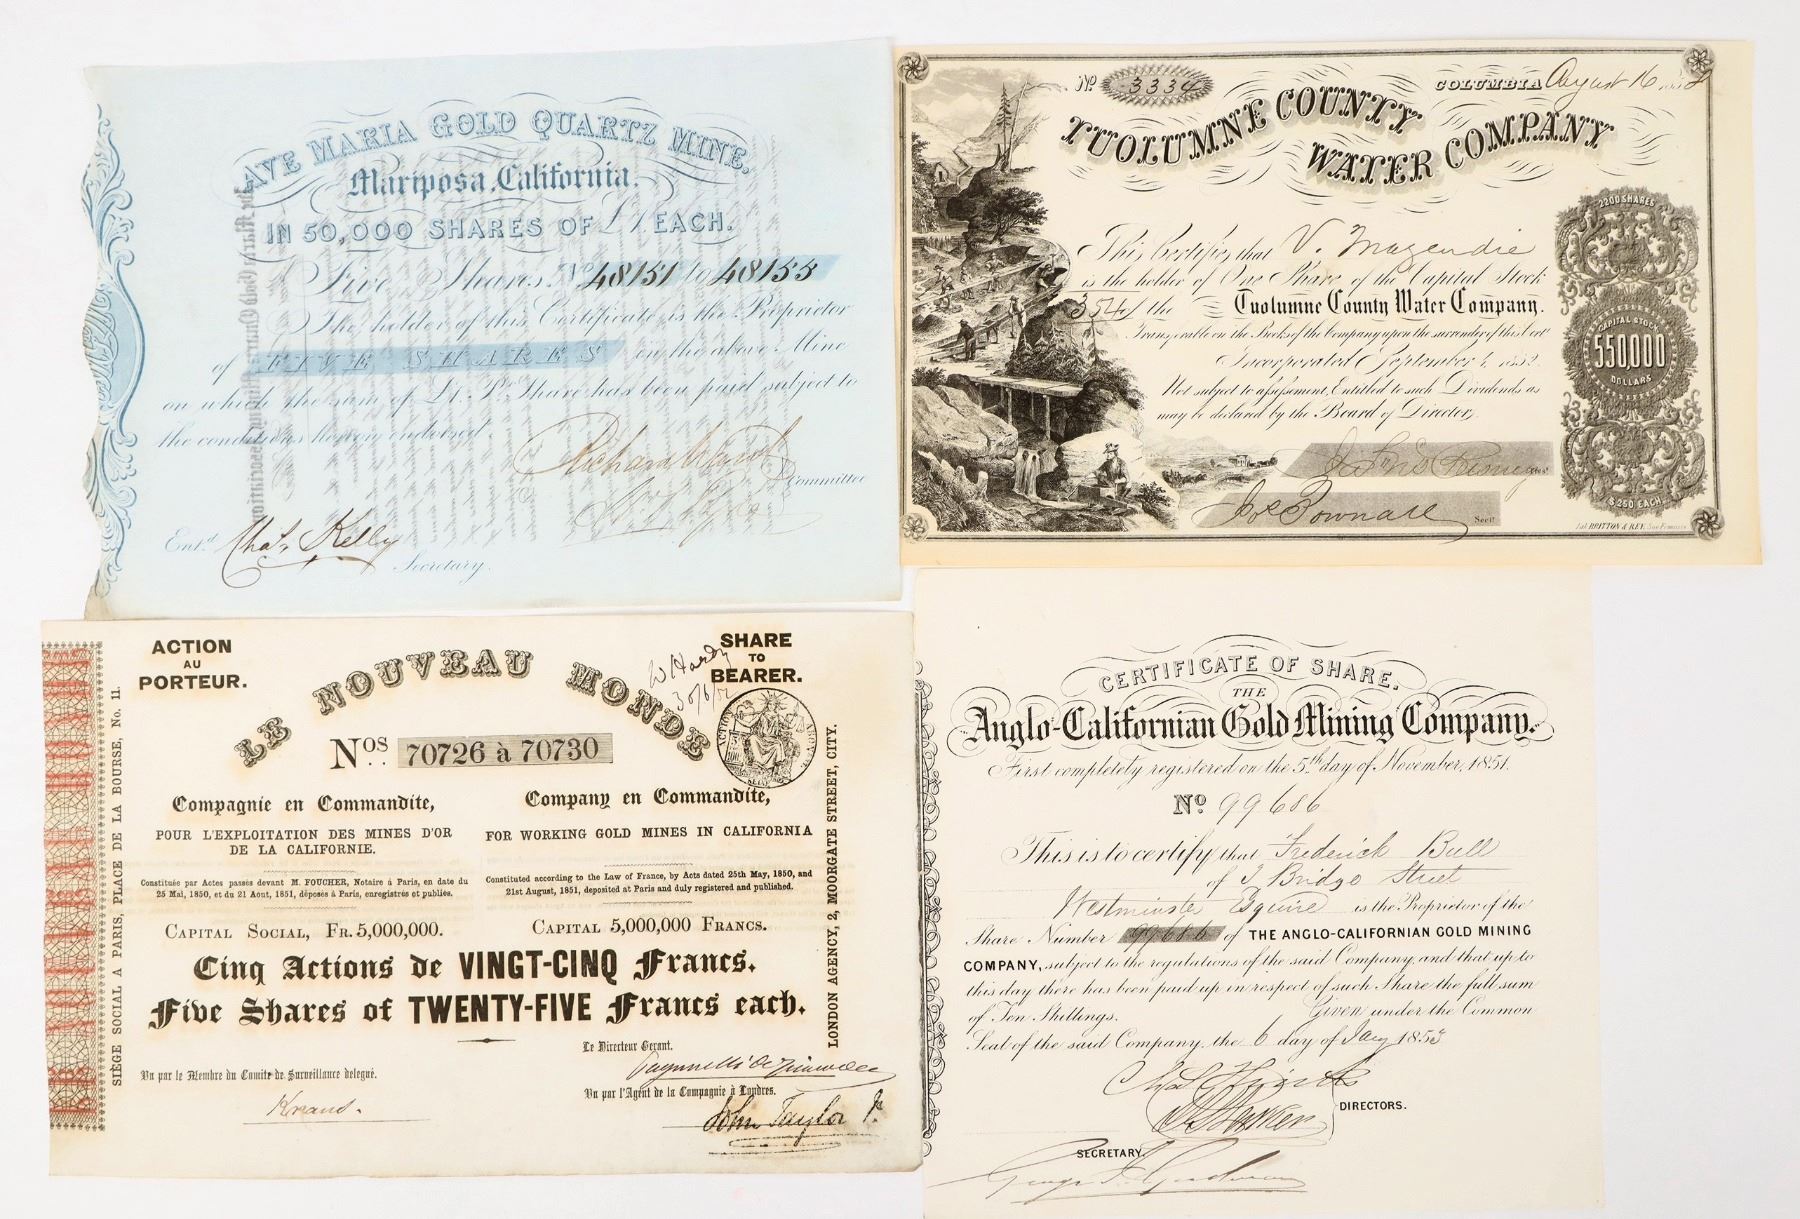 AVE MARIA GOLD QUARTZ MINE.
Mariposa, California.
IN 50,000 SHARES OF £1 EACH.
Five Shares. No. 48151 to 48155
The holder of this Certificate is the Proprietor
of FIVE SHARES on the above Mine
on which the sum of £1. Pr. Share has been paid subject to
the conditions hereon endorsed.
Committee
Entd. Chas. Kelly
Secretary.
No. 3334 COLUMBIA August 16 185
TUOLUMNE COUNTY
WATER COMPANY
2200 SHARES
This Certifies that V. Magendie
is the holder of One Share of the Capital Stock
354 of the Tuolumne County Water Company.
Transferable on the Books of the Company upon the surrender of this Cert.
Incorporated September 4, 1852.
Not subject to assessment, Entitled to such Dividends as
may be declared by the Board of Directors,
CAPITAL STOCK
550,000
DOLLARS
$ 250 EACH
Jos Pownall Secy.
Lith. BRITTON & REY. San Francisco
ACTION
AU
PORTEUR.
SHARE
TO
BEARER.
W Hardy
30/6/52
LE NOUVEAU MONDE
Nos. 70726 à 70730
Compagnie en Commandite,
POUR L'EXPLOITATION DES MINES D'OR
DE LA CALIFORNIE.
Constituée par Actes passés devant M. FOUCHER, Notaire à Paris, en date du
25 Mai, 1850, et du 21 Aout, 1851, déposés à Paris, enregistrés et publiés.
CAPITAL SOCIAL, FR. 5,000,000.
Company en Commandite,
FOR WORKING GOLD MINES IN CALIFORNIA
Constituted according to the Law of France, by Acts dated 25th May, 1850, and
21st August, 1851, deposited at Paris and duly registered and published.
CAPITAL 5,000,000 FRANCS.
Cinq Actions de VINGT-CINQ Francs.
Five Shares of TWENTY-FIVE Francs each.
Le Directeur Gerant.
Vu par le Membre du Comite de Surveillance delegué.
Vu par l'Agent de la Compagnie à Londres.
John Taylor Jr.
SIÉGE SOCIAL A PARIS, PLACE DE LA BOURSE, No. 11.
LONDON AGENCY, 2, MOORGATE STREET, CITY.
CERTIFICATE OF SHARE.
THE
Anglo-Californian Gold Mining Company.
First completely registered on the 5th day of November, 1851.
No 99686
This is to certify that Frederick Bull
of Bridge Street
Westminster Esquire is the Proprietor of the
Share Number 99686 of THE ANGLO-CALIFORNIAN GOLD MINING
COMPANY, subject to the regulations of the said Company, and that up to
this day there has been paid up in respect of such Share the full sum
of Ten Shillings. Given under the Common
Seal of the said Company the 6 day of Jany 1853
DIRECTORS.
SECRETARY.